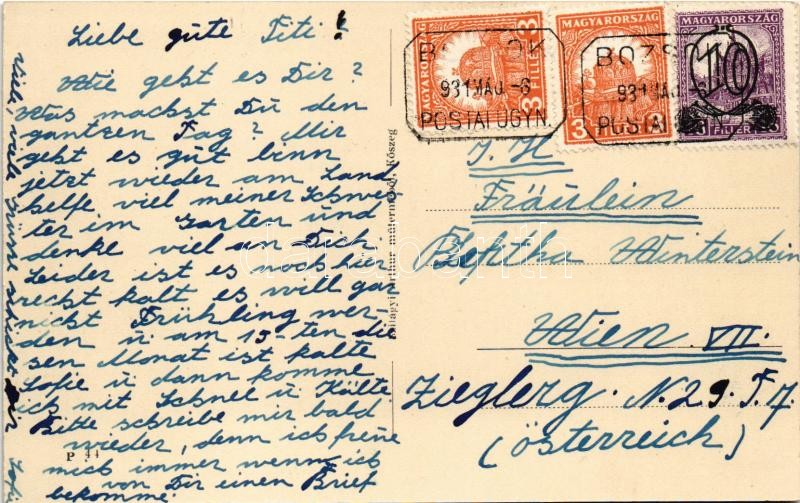 Liebe gute Titi!
Wie geht es Dir?
Was machst Du den
gantzen Tag? Mir
geht es gut binn
jetzt wieder am Land
helfe viel meiner Schwes
ter im Garten und
denke viel an Dich.
Leider ist es noch hier
recht kalt es will gar
nicht Frühling wer
den u am 15-ten die
sen Monat ist kalte
Sofie u dann komme
ich mit Schnee u Kälte
Bitte schreibe mir bald
wieder, denn ich freue
mich immer wenn ich
von Dir einen Brief
bekomme!
viele, viele Grüsse
P 44
Kőszeg
MAGYARORSZÁG
3 FILLÉR 3
MAGYARORSZÁG
3
MAGYARORSZÁG
10
FILLÉR
931 MÁJ. -6
POSTAI ÜGYN.
BOZSOK
931 MÁJ. -6
POSTAI
I. H
Fräulein
Winterstein
Wien VII.
Zieglerg. N. 29. T. 7.
(Österreich)
darabanth